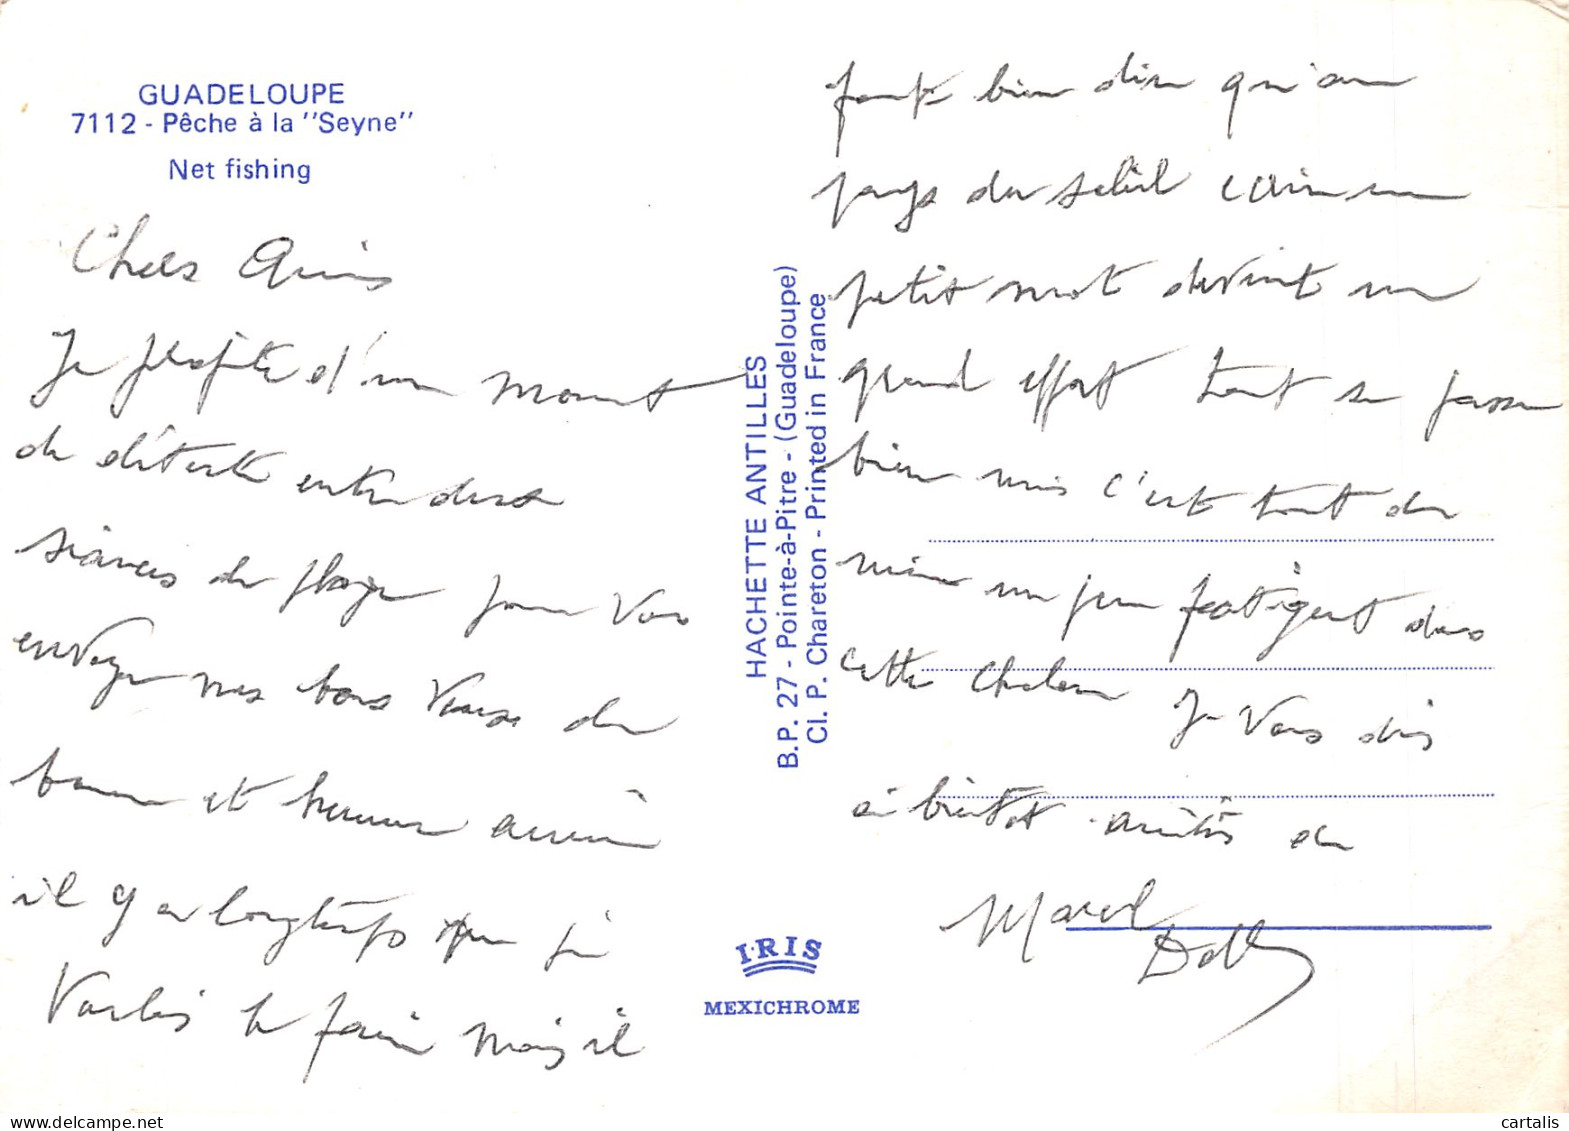 GUADELOUPE
7112 - Pêche à la "Seyne"
Net fishing
Chers Amis
Je profite d'un moment
de détente entre deux
séances de plage pour vous
envoyer mes bons voeux de
bonne et heureuse année
il y a longtemps que je
voulais le faire mais il
HACHETTE ANTILLES
B.P. 27 - Pointe-à-Pitre - (Guadeloupe)
Cl. P. Chareton - Printed in France
IRIS
MEXICHROME
faut bien dire qu'au
pays du soleil écrire un
petit mot devient un
grand effort tout se passe
bien mais c'est tout de
même un peu fatigant dans
cette chaleur Je vous dis
à bientôt amitiés de
Marcel
cartalis